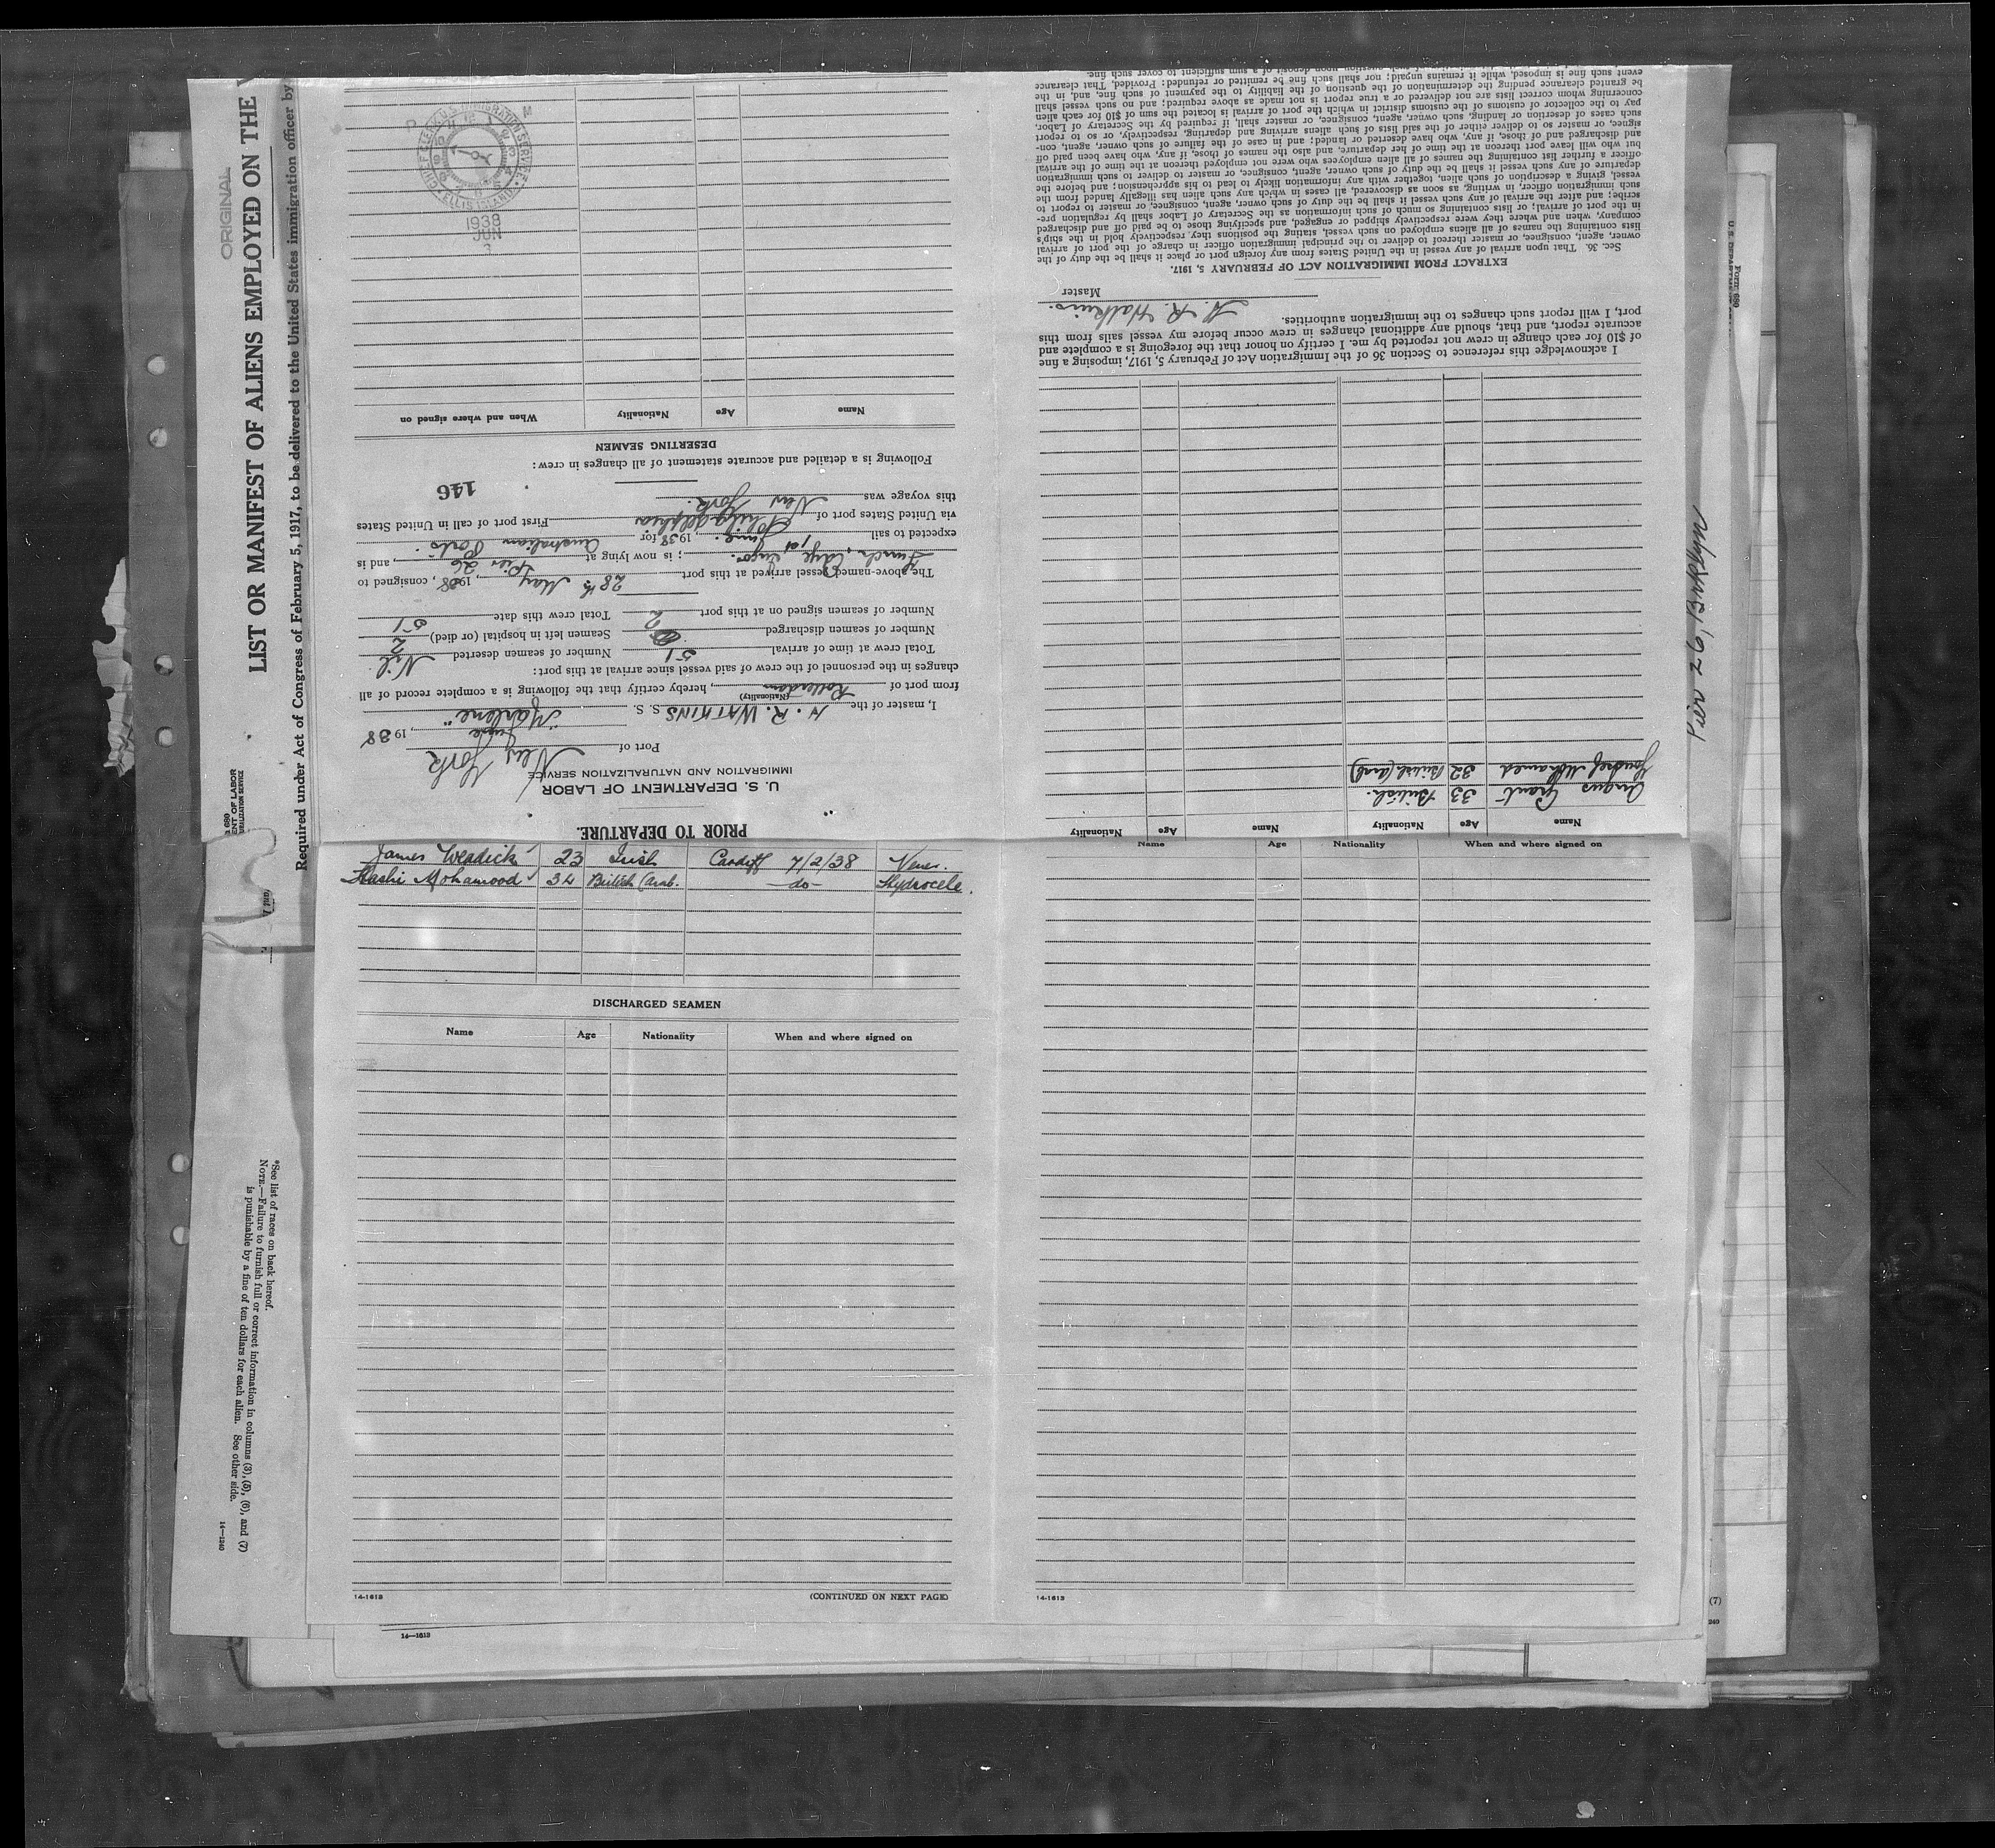 ORIGINAL
LIST OR MANIFEST OF ALIENS EMPLOYED ON THE
Required under Act of Congress of February 5, 1917, to be delivered to the United States immigration officer by
*See list of races on back hereof.
NOTE.—Failure to furnish full or correct information in columns (3), (5), (6), and (7)
is punishable by a fine of ten dollars for each alien. See other side.
14—1240
PRIOR TO DEPARTURE.
U. S. DEPARTMENT OF LABOR
IMMIGRATION AND NATURALIZATION SERVICE
Port of New York
June, 1938
I, H. R. WATKINS master of the S. S. "Marlene"
(Nationality)
from port of Rotterdam, hereby certify that the following is a complete record of all
changes in the personnel of the crew of said vessel since arrival at this port:
Total crew at time of arrival 51 Number of seamen deserted Nil.
Number of seamen discharged Seamen left in hospital (or died) 2
Number of seamen signed on at this port 2 Total crew this date 51
The above-named vessel arrived at this port 28th May, 1938, consigned to
Funch, Edye & Co.; is now lying at Pier 26, and is
expected to sail June 1st, 1938 for Australian Ports
via United States port of Philadelphia First port of call in United States
this voyage was New York.
146
Following is a detailed and accurate statement of all changes in crew:
DESERTING SEAMEN
Name Age Nationality When and where signed on
CHIEF CLERK U.S. IMMIGRATION SERVICE
ELLIS ISLAND
1938
JUN
3
James Weadick 23 Irish Cardiff 7/2/38 Vener.
Hashi Mohamood 34 British Arab. -do- Hydrocele.
DISCHARGED SEAMEN
Name Age Nationality When and where signed on
14-1613
(CONTINUED ON NEXT PAGE)
14—1613
Name Age Nationality Name Age Nationality
Angus Grant 33 British.
Yousef Mohamed 32 British (Arab)
I acknowledge this reference to Section 36 of the Immigration Act of February 5, 1917, imposing a fine
of $10 for each change in crew not reported by me. I certify on honor that the foregoing is a complete and
accurate report, and that, should any additional changes in crew occur before my vessel sails from this
port, I will report such changes to the immigration authorities.
H. R. Watkins.
Master
EXTRACT FROM IMMIGRATION ACT OF FEBRUARY 5, 1917.
Sec. 36. That upon arrival of any vessel in the United States from any foreign port or place it shall be the duty of the
owner, agent, consignee, or master thereof to deliver to the principal immigration officer in charge of the port of arrival
lists containing the names of all aliens employed on such vessel, stating the positions they respectively hold in the ship's
company, when and where they were respectively shipped or engaged, and specifying those to be paid off and discharged
in the port of arrival; or lists containing so much of such information as the Secretary of Labor shall by regulation pre-
scribe; and after the arrival of any such vessel it shall be the duty of such owner, agent, consignee, or master to report to
such immigration officer, in writing, as soon as discovered, all cases in which any such alien has illegally landed from the
vessel, giving a description of such alien, together with any information likely to lead to his apprehension; and before the
departure of any such vessel it shall be the duty of such owner, agent, consignee, or master to deliver to such immigration
officer a further list containing the names of all alien employees who were not employed thereon at the time of the arrival
but who will leave port thereon at the time of her departure, and also the names of those, if any, who have been paid off
and discharged and of those, if any, who have deserted or landed; and in case of the failure of such owner, agent, con-
signee, or master so to deliver either of the said lists of such aliens arriving and departing, respectively, or so to report
such cases of desertion or landing, such owner, agent, consignee, or master, shall, if required by the Secretary of Labor,
pay to the collector of customs of the customs district in which the port of arrival is located the sum of $10 for each alien
concerning whom correct lists are not delivered or a true report is not made as above required; and no such vessel shall
be granted clearance pending the determination of the question of the liability to the payment of such fine, and, in the
event such fine is imposed, while it remains unpaid; nor shall such fine be remitted or refunded: Provided, That clearance
Name Age Nationality When and where signed on
14-1613
Pier 26, Brooklyn
Form 680
(7)